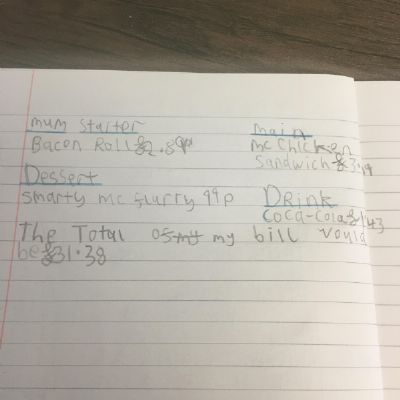 mum starter
Bacon Roll £2.89p
Dessert
Smarty mc flurry 99p
The Total of my my bill would
be £31.38
Main
mc chicken
Sandwich £3.19
DRink
Coca-Cola £1.43